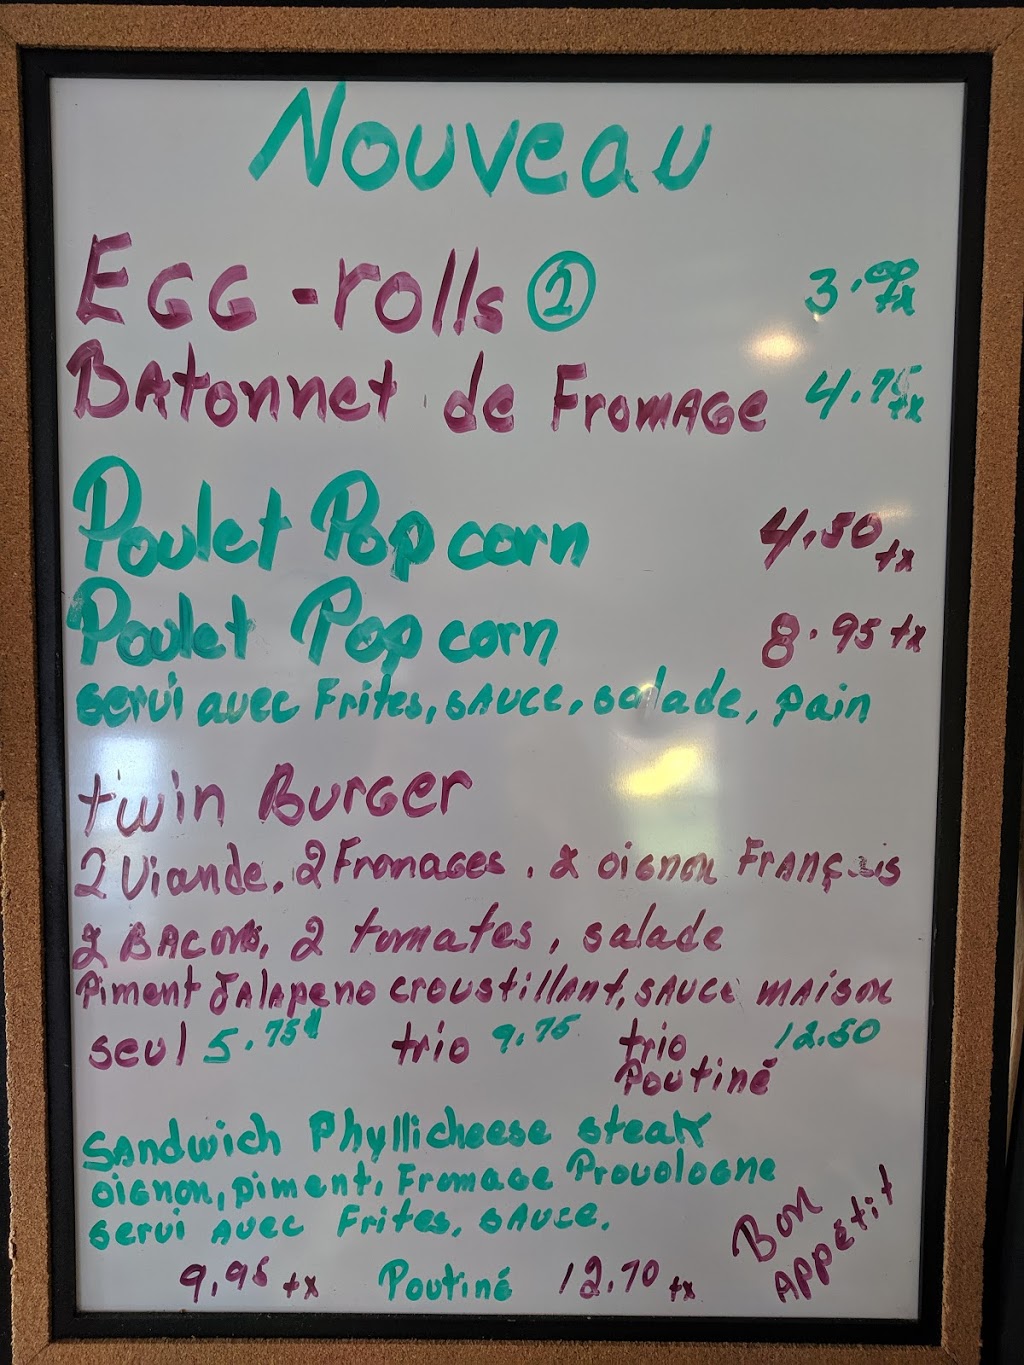 Nouveau
EGG-rolls ② 3.00 tx
BAtonnet de FromAGe 4.75 tx
Poulet Popcorn 4.50 tx
Poulet Popcorn 8.95 tx
servi avec Frites, sAuce, salade, pain
twin BurGer
2 Viande, 2 Fromages, 2 oignon FrAnçais
2 BAcons, 2 tomates, salade
Piment JAlApeno croustillAnt, sAuce mAison
seul 5.75$ trio 9.75 trio 12.50
Poutiné
SAndwich Phyllicheese steak
oignon, piment, Fromage Provologne
servi Avec Frites, sAuce.
9.95 tx Poutiné 12.70 tx
Bon
Appétit